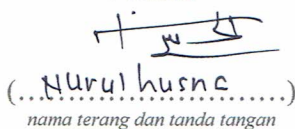 (Nurul husna)
nama terang dan tanda tangan